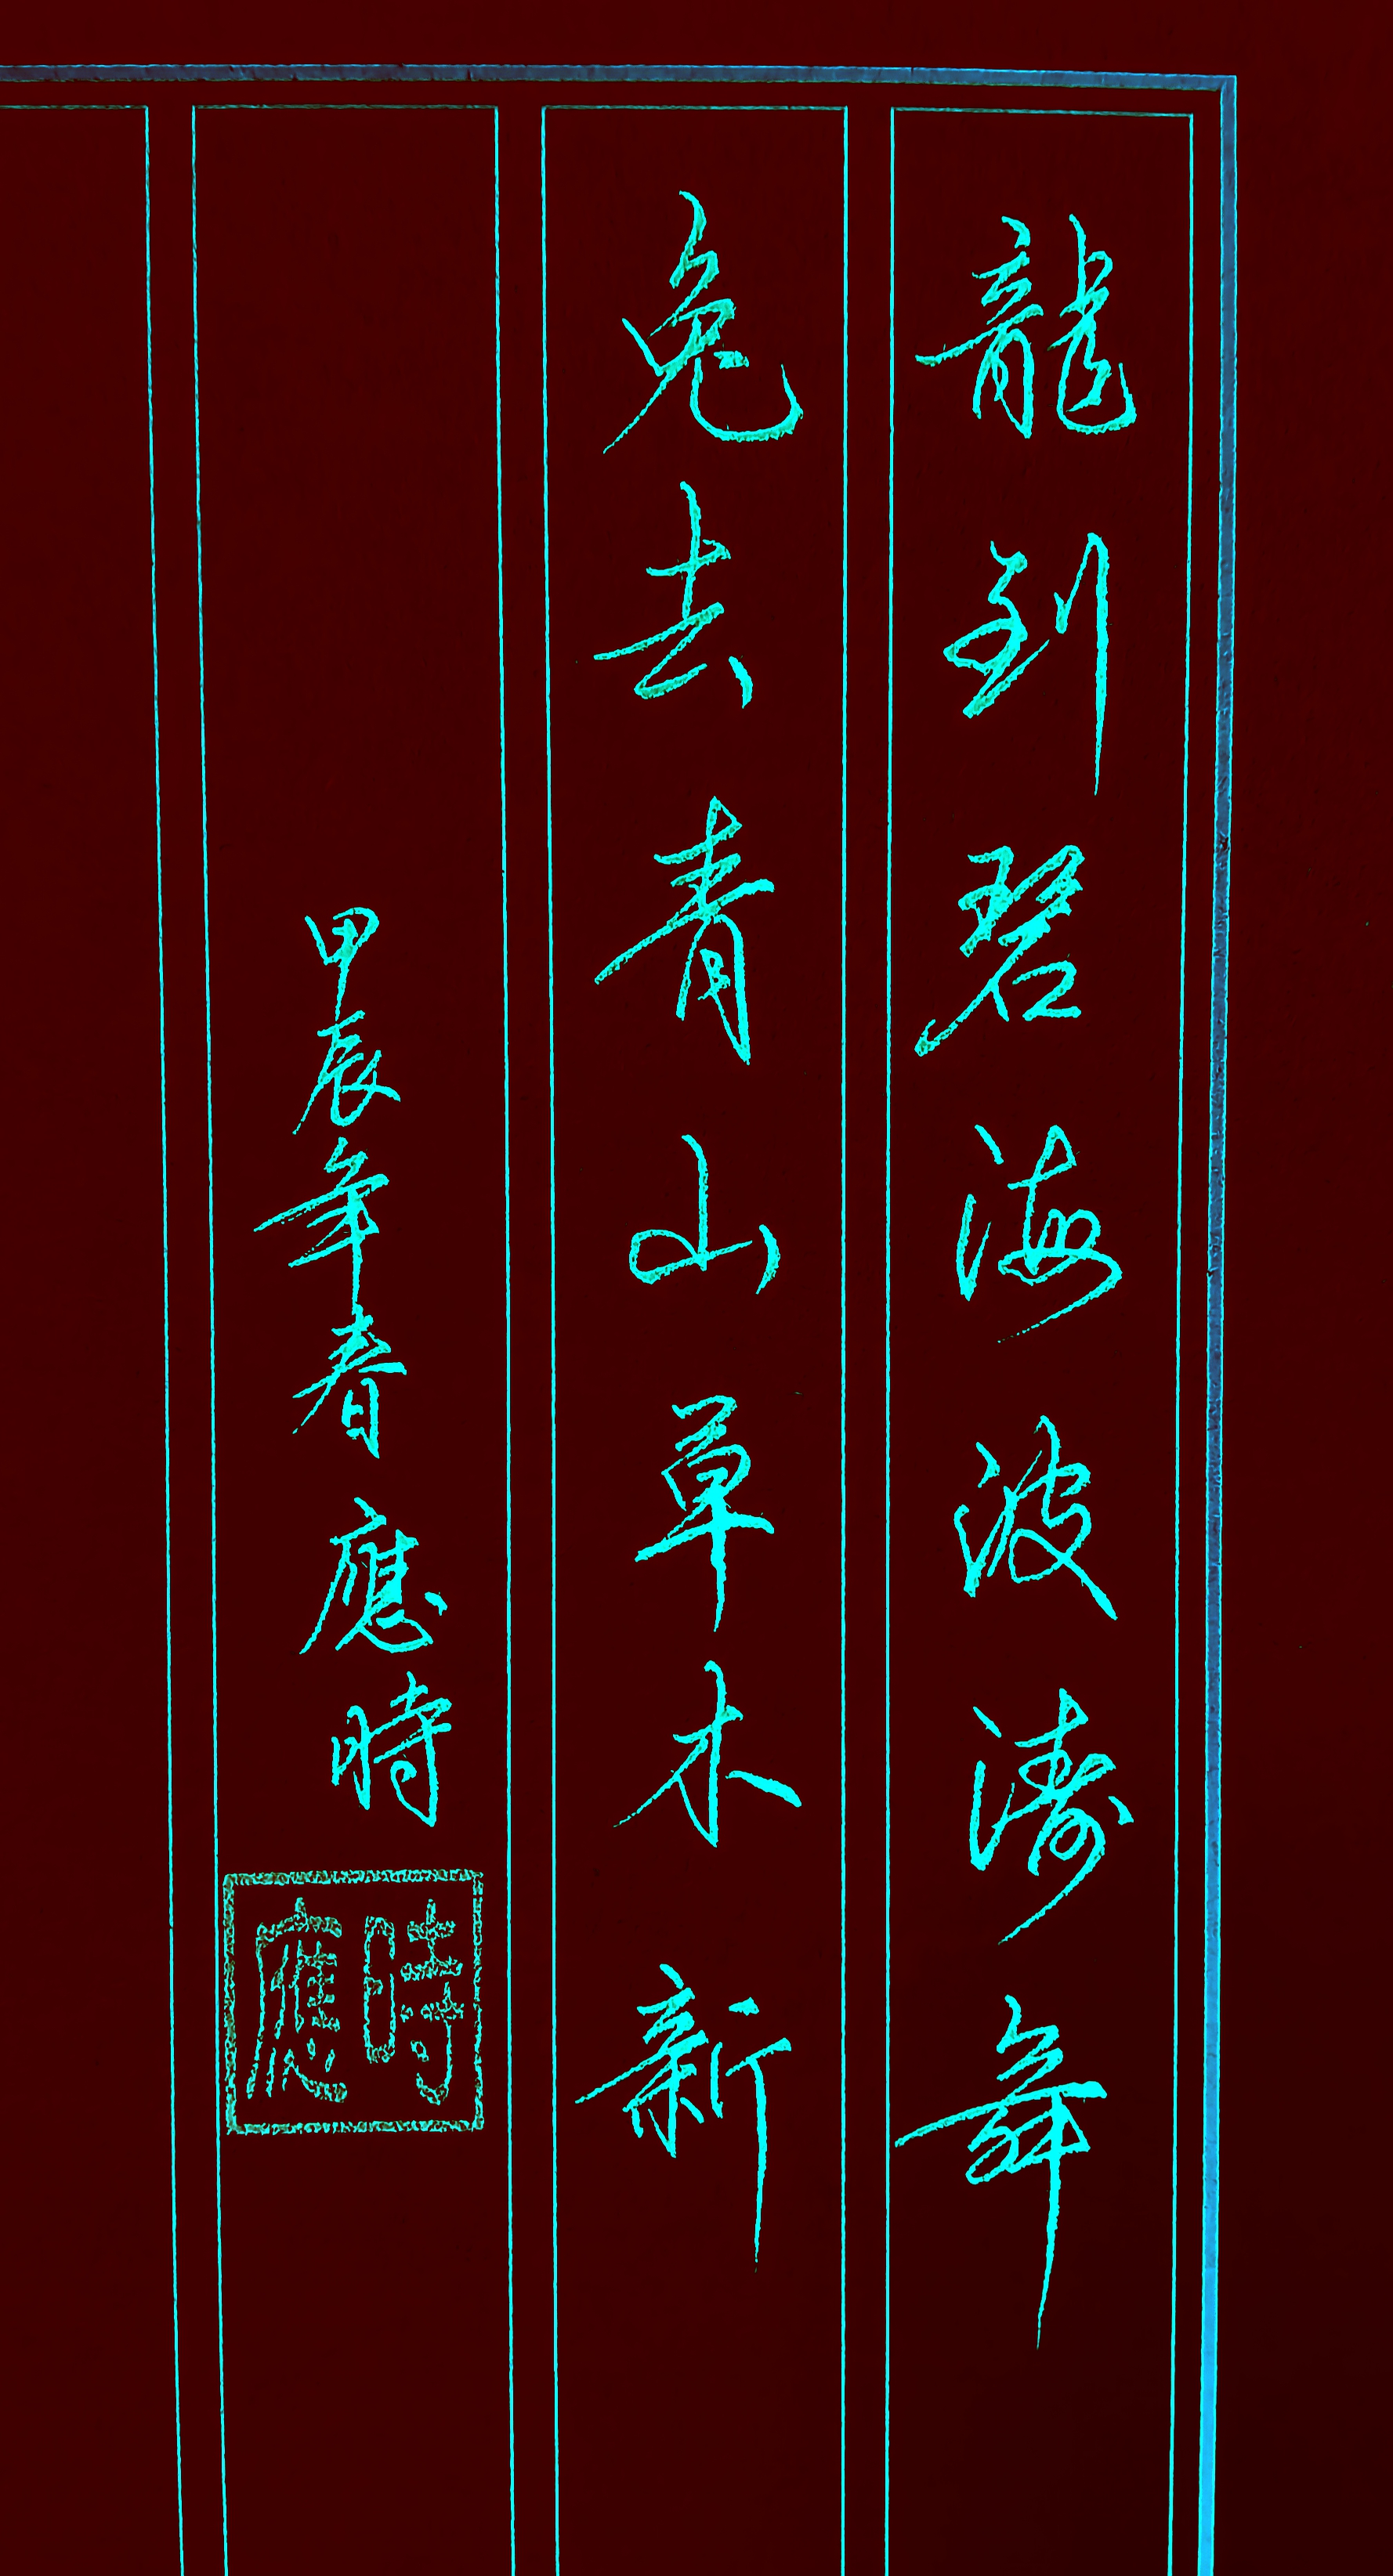 龍到碧海波濤舞
兔去青山草木新
甲辰年春應時
時應